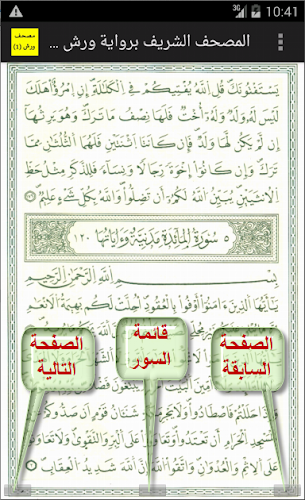 3G 10:41
مصحف
ورش (1)
المصحف الشريف برواية ورش ...
يَسْتَفْتُونَكَ قُلِ اللَّهُ يُفْتِيكُمْ فِي الْكَلَٰلَةِ إِنِ امْرُؤٌا هَلَكَ
لَيْسَ لَهُ وَلَدٌ وَلَهُ أُخْتٌ فَلَهَا نِصْفُ مَا تَرَكَ وَهُوَ يَرِثُهَا
إِن لَّمْ يَكُن لَّهَا وَلَدٌ فَإِن كَانَتَا اَثْنَتَيْنِ فَلَهُمَا الثُّلُثَٰنِ مِمَّا
تَرَكَ وَإِن كَانُوا إِخْوَةً رِّجَالًا وَنِسَاءً فَلِلذَّكَرِ مِثْلُ حَظِّ
الْأُنثَيَيْنِ يُبَيِّنُ اللَّهُ لَكُمْ أَن تَضِلُّوا وَاللَّهُ بِكُلِّ شَيْءٍ عَلِيمٌ
5 سُورَةُ الْمَائِدَةِ مَدَنِيَّة وَءَايَاتُهَا 120
بِسْمِ اللَّهِ الرَّحْمَٰنِ الرَّحِيمِ
يَٰأَيُّهَا الَّذِينَ ءَامَنُوا أَوْفُوا بِالْعُقُودِ أُحِلَّتْ لَكُم بَهِيمَةُ الْأَنْعَٰمِ
الصفحة السابقة
قائمة السور
الصفحة التالية
حَلَلْتُمْ فَاصْطَادُوا وَلَا شَنَـَٔانُ قَوْمٍ أَن صَدُّوكُمْ
الْحَرَامِ أَن تَعْتَدُوا وَتَعَاوَنُوا عَلَى الْبِرِّ وَالتَّقْوَىٰ وَلَا تَعَاوَنُوا
عَلَى الْإِثْمِ وَالْعُدْوَٰنِ وَاتَّقُوا اللَّهَ إِنَّ اللَّهَ شَدِيدُ الْعِقَابِ